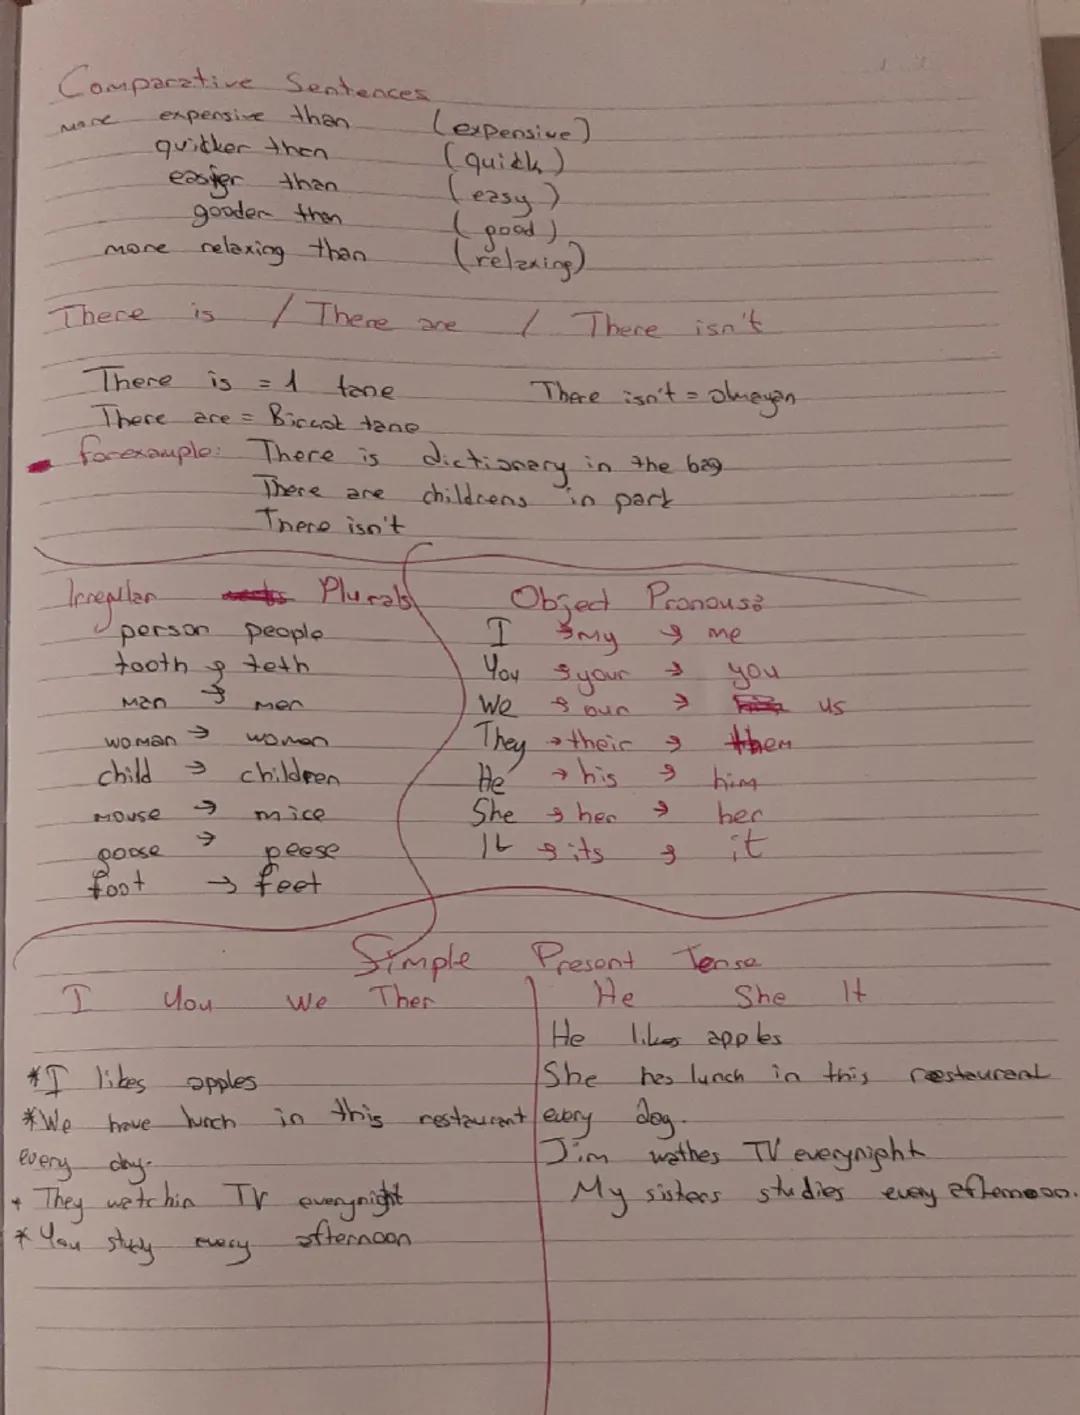 Comparative Sentences
more expensive than (expensive)
quicker then (quick)
easier than (easy)
gooder then (good)
more relaxing than (relaxing)
There is / There are / There isn't
There is = 1 tane There isn't = olmayan
There are = Birçok tane
forexample: There is dictionary in the bag
There are childrens in park
There isn't
Irregular Plurals
person people
tooth → teth
man → men
woman → women
child → children
mouse → mice
goose → geese
foot → feet
Object Pronous:
I → my → me
You → your → you
We → our → us
They → their → them
He → his → him
She → her → her
It → its → it
Simple Present Tense
I You We Ther
* I likes apples
* We have lunch in this restaurant
every day.
* They watchin TV everynight
* You study every afternoon
He She It
He likes apples
She has lunch in this restaurant
every day.
Jim wathes TV everynight
My sisters studies every afternoon.